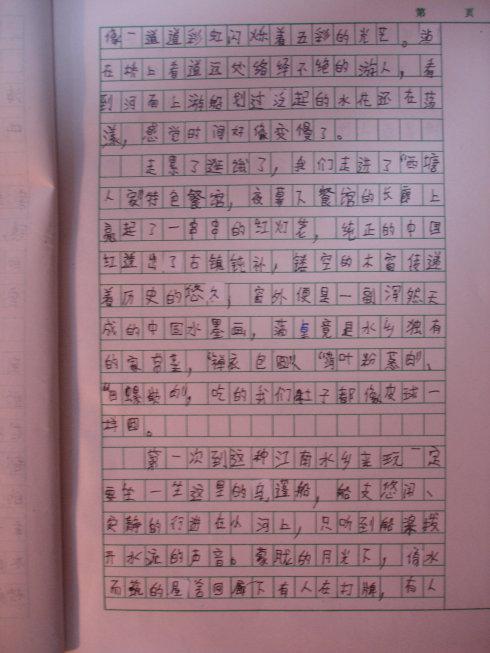 第 页
像一道道彩虹闪烁着五彩的光芒。站
在桥上看道远处络绎不绝的游人,看
到河面上游船划过泛起的水花还在荡
漾,感觉时间好像变慢了。
走累了逛饿了,我们走进了“西塘
人家”特色餐馆,夜幕下餐馆的长廊上
亮起了一串串的红灯笼,纯正的中国
红道出了古镇纯朴,镂空的木窗传递
着历史的悠久,窗外便是一副浑然天
成的中国水墨画,菜桌竟是水乡独有
的家常菜,“包圆”“荷叶粉蒸肉”、
“田螺肉”,吃的我们肚子都像皮球一
样圆。
第一次到这种江南水乡来玩一定
要坐一坐这里的乌篷船,船支悠闲、
安静的行进在小河上,只听到船桨拨
开水流的声音。朦胧的月光下,傍水
而筑的屋舍回廊下有人在打牌,有人